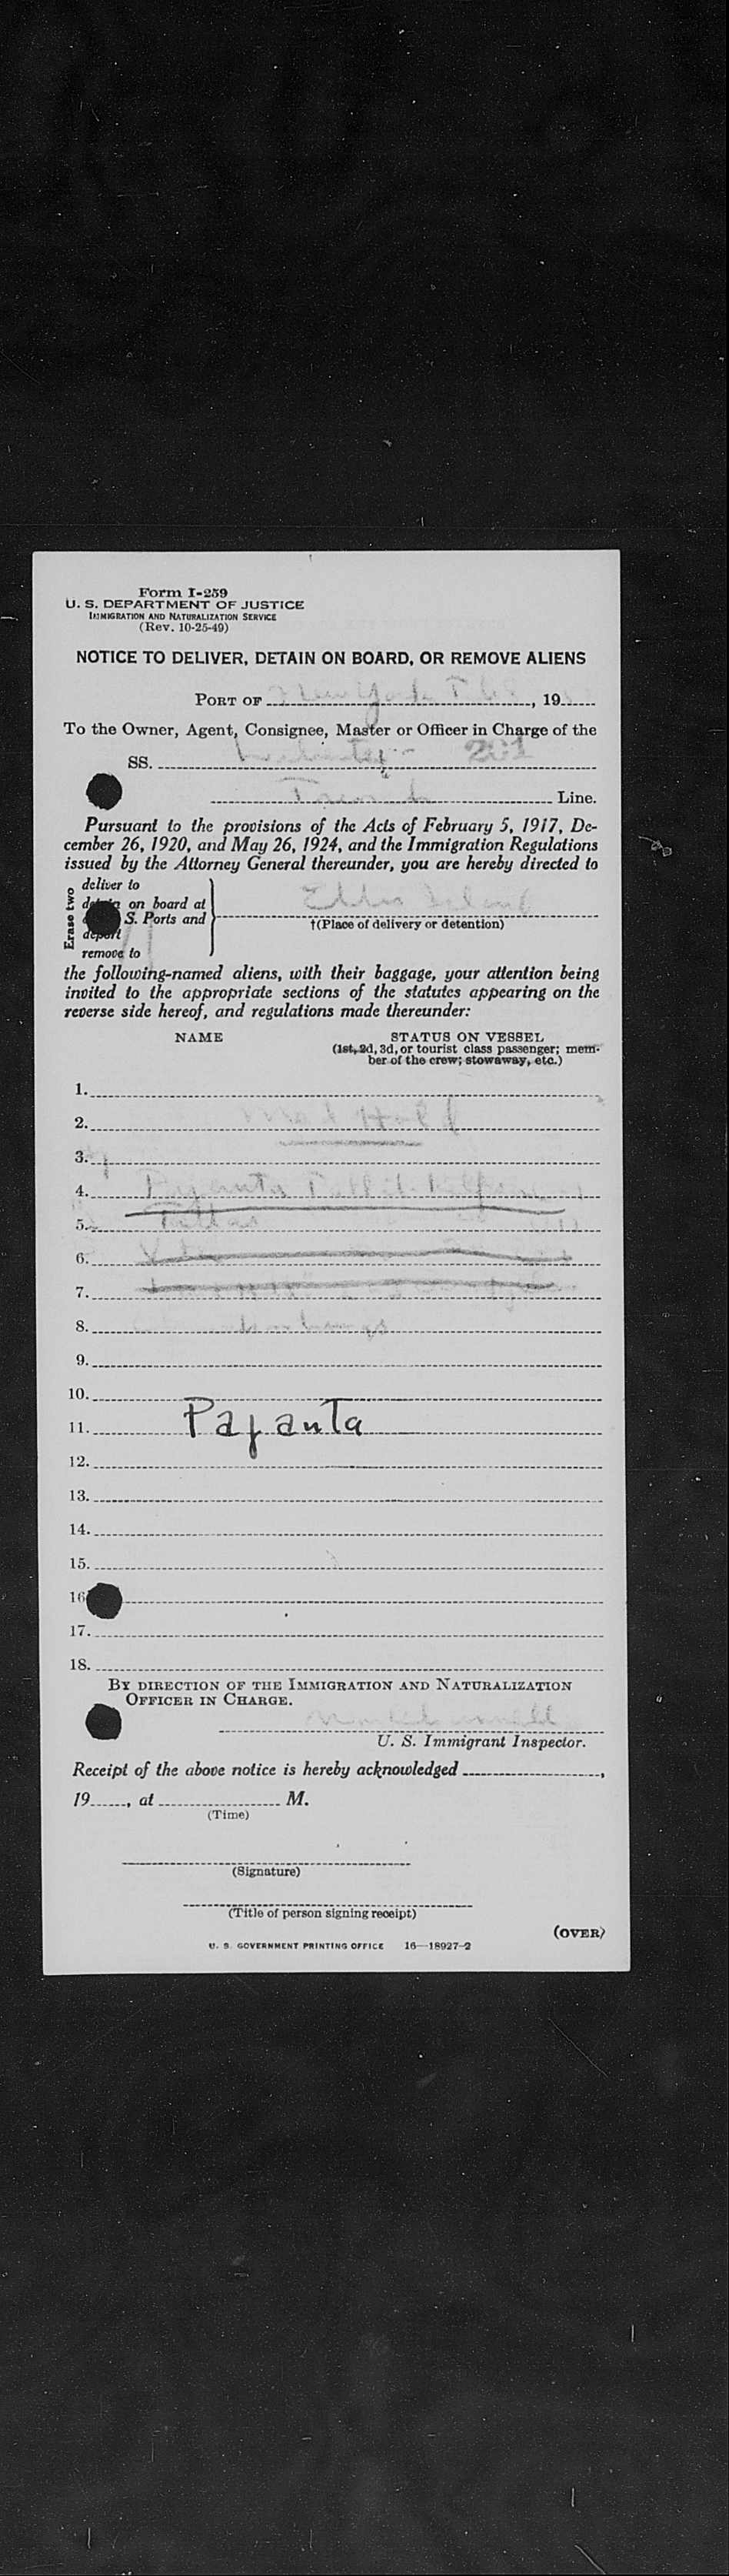 Form I-259
U. S. DEPARTMENT OF JUSTICE
IMMIGRATION AND NATURALIZATION SERVICE
(Rev. 10-25-49)
NOTICE TO DELIVER, DETAIN ON BOARD, OR REMOVE ALIENS
PORT OF New York Feb , 19
To the Owner, Agent, Consignee, Master or Officer in Charge of the
SS. 201
French Line.
Pursuant to the provisions of the Acts of February 5, 1917, De-
cember 26, 1920, and May 26, 1924, and the Immigration Regulations
issued by the Attorney General thereunder, you are hereby directed to
Erase two
deliver to
on board at
S. Ports and
deport
remove to
Ellis Island
†(Place of delivery or detention)
the following-named aliens, with their baggage, your attention being
invited to the appropriate sections of the statutes appearing on the
reverse side hereof, and regulations made thereunder:
NAME STATUS ON VESSEL
(1st, 2d, 3d, or tourist class passenger; mem-
ber of the crew; stowaway, etc.)
1.
2. Hold
3.
4. Pajanta
5.
6.
7.
8.
9.
10.
11. Pajanta
12.
13.
14.
15.
16
17.
18.
BY DIRECTION OF THE IMMIGRATION AND NATURALIZATION
OFFICER IN CHARGE.
U. S. Immigrant Inspector.
Receipt of the above notice is hereby acknowledged ,
19 , at M.
(Time)
(Signature)
(Title of person signing receipt)
(OVER)
U. S. GOVERNMENT PRINTING OFFICE 16—18927-2